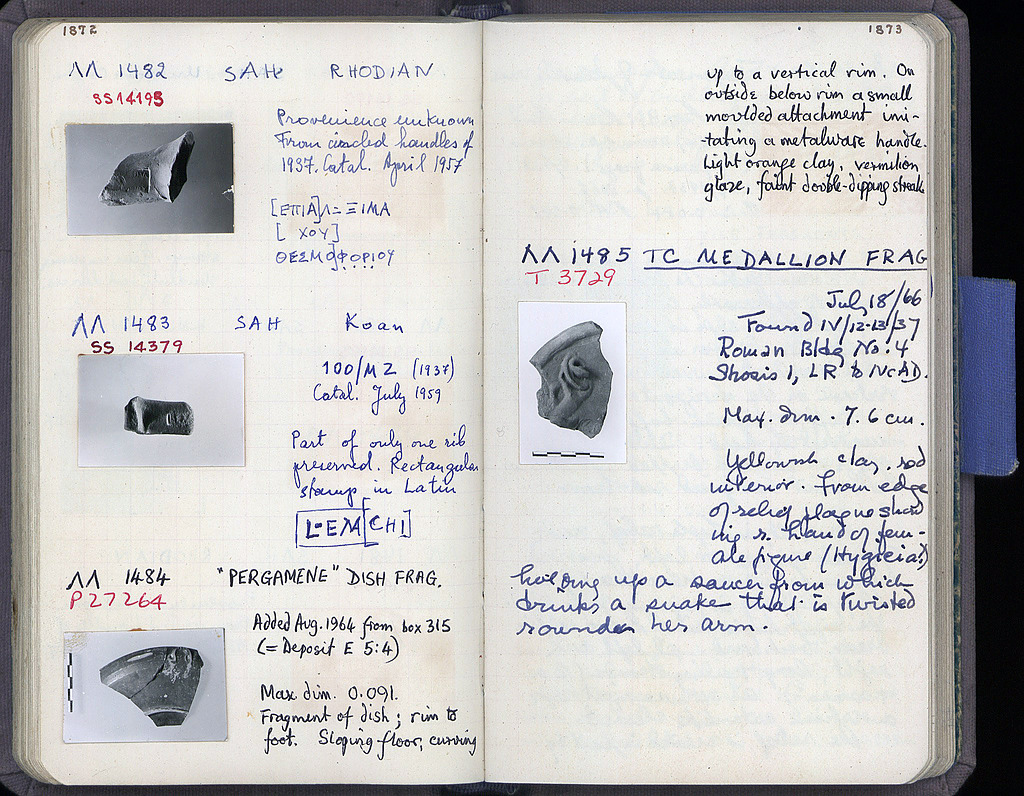 1872
ΛΛ 1482 SAH RHODIAN
SS 14195
Provenience unknown
From uncled handles of
1937. Catal. April 1957
[ΕΠΙΑ]Λ=ΞΙΜΑ
[ ΧΟΥ]
ΘΕΣΜΟ]ΦΟΡΙΟΥ
ΛΛ 1483 SAH Koan
SS 14379
100/MZ (1937)
Catal. July 1959
Part of only one rib
preserved. Rectangular
stamp in Latin
L=EM[CHI]
ΛΛ 1484 "PERGAMENE" DISH FRAG.
P 27264
Added Aug. 1964 from box 315
(= Deposit E 5:4)
Max dim. 0.091.
Fragment of dish; rim to
foot. Sloping floor, curving
1873
up to a vertical rim. On
outside below rim a small
moulded attachment imi-
-tating a metalware handle.
Light orange clay, vermilion
glaze, faint double-dipping streak
ΛΛ 1485 TC MEDALLION FRAG
T 3729
July 18/66
Found IV/12-13/37
Roman Bldg No. 4
Shosis 1, LR to IVc AD.
Max. dim. 7.6 cm.
Yellowish clay, red
interior. From edge
of relief plaque show
ing r. hand of fem-
ale figure (Hygieia?)
holding up a saucer from which
drinks a snake that is twisted
rounder her arm.